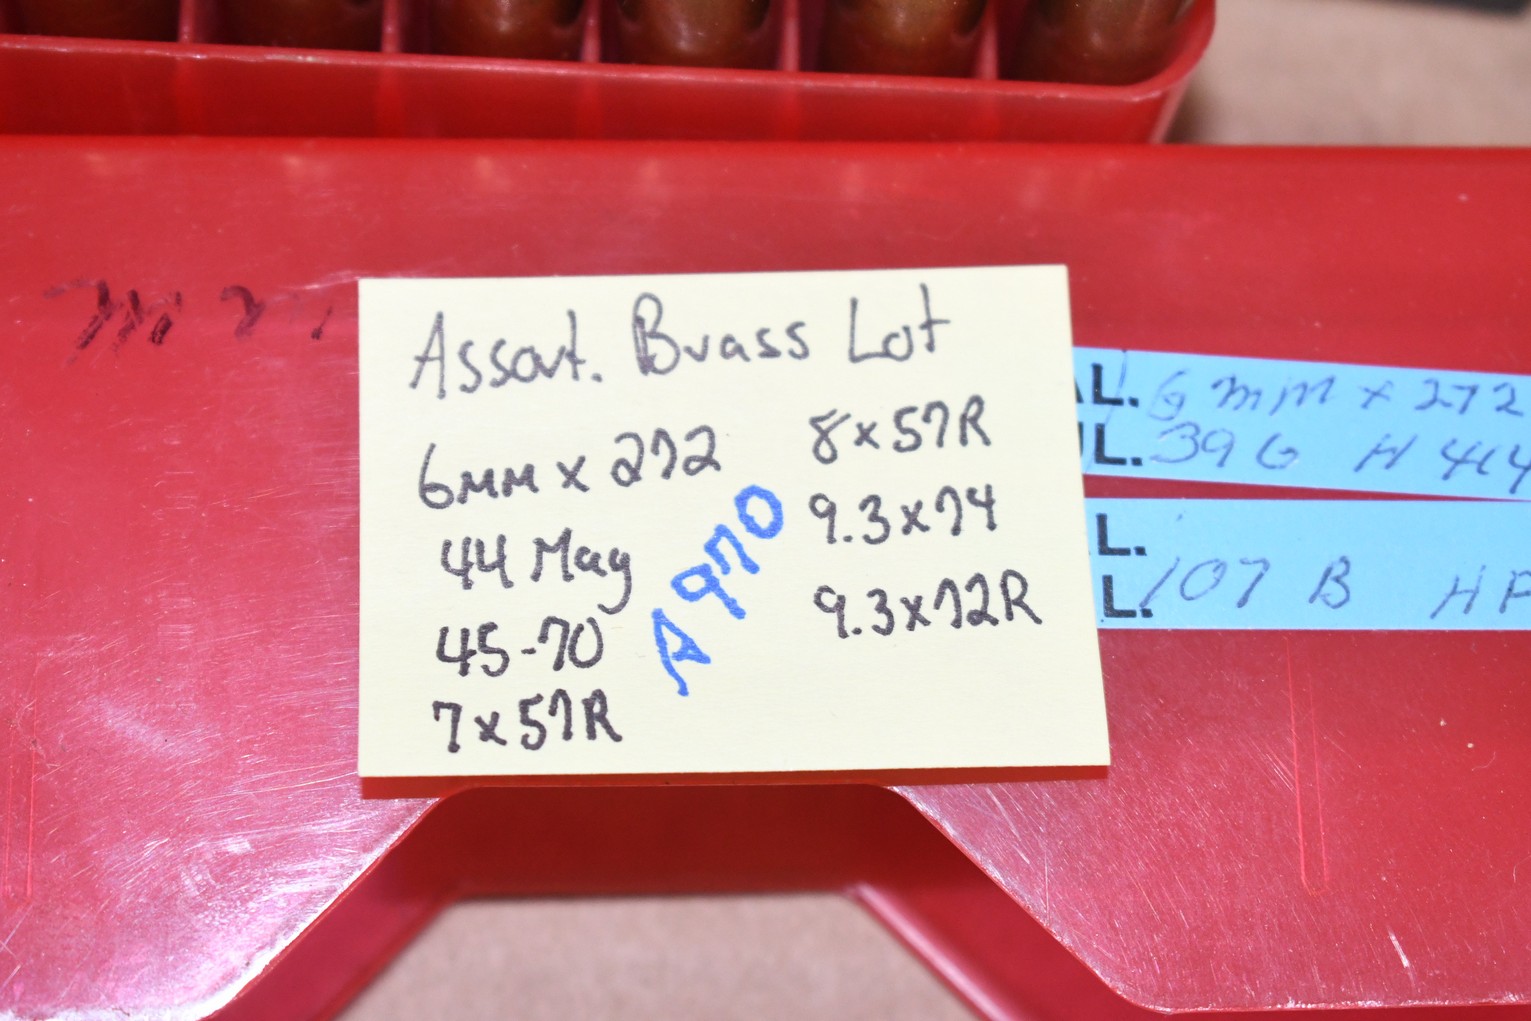 Assort. Brass Lot
6mm x 272
44 Mag
45-70
7x57R
8x57R
9.3x74
9.3x72R
A970
L. 6mm x 272
L. 39 G H 414
L.
L. 107 B HP